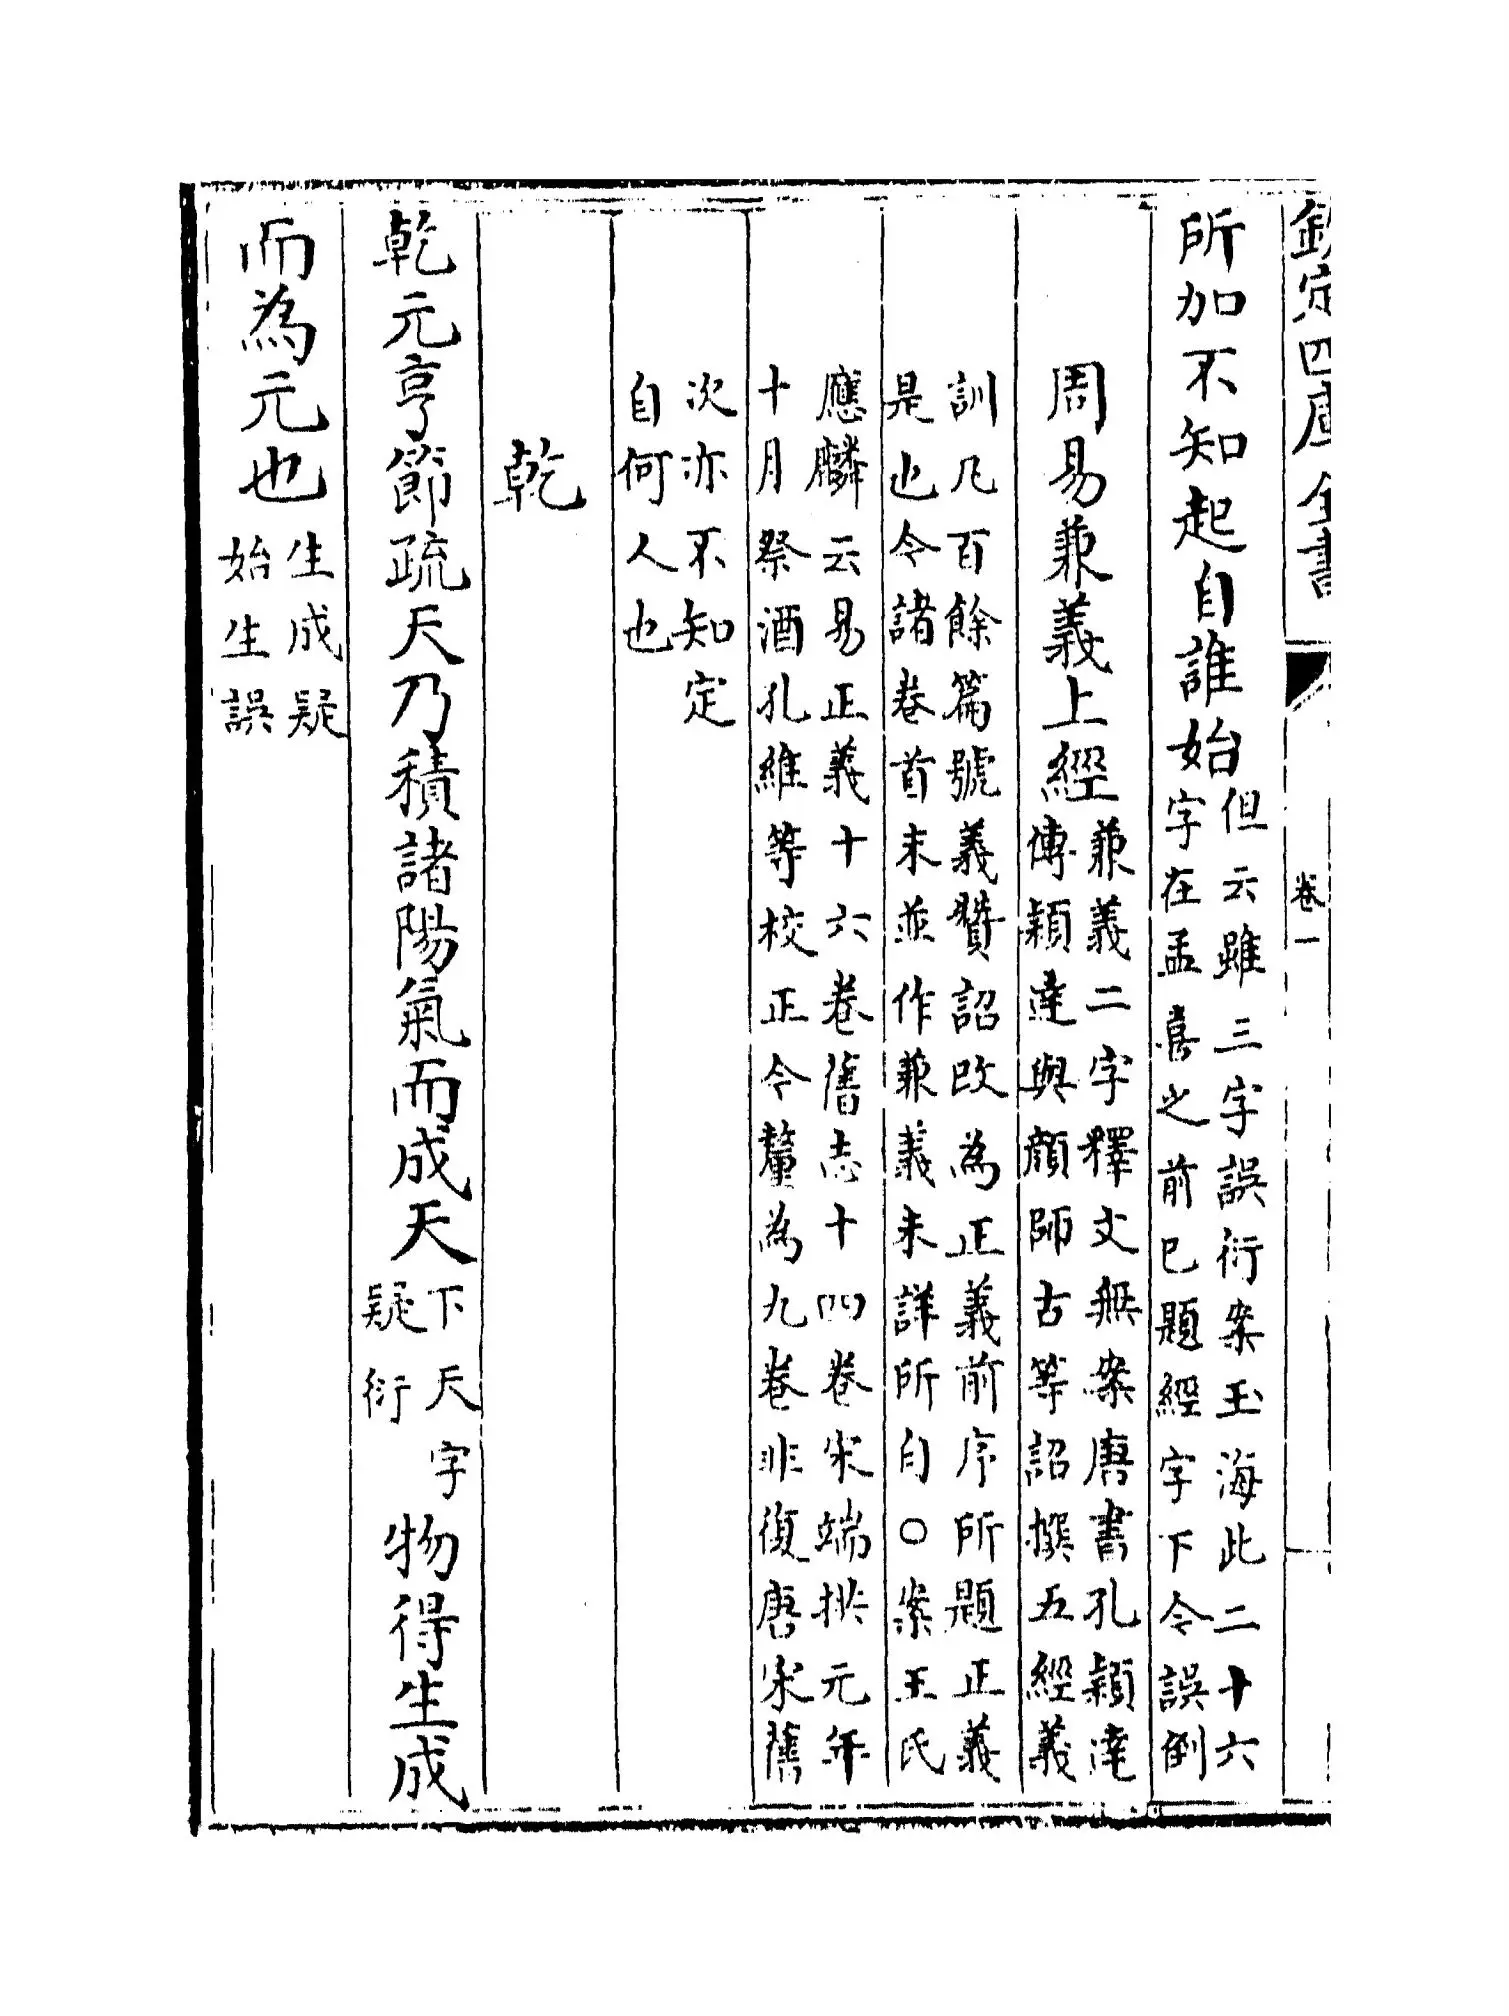 欽定四庫全書
卷一
所加不知起自誰始但云雖三字誤衍案玉海此二十六
字在孟喜之前已題經字下今誤倒
周易兼義上經兼義二字釋文無案唐書孔穎達
傳穎達與顔師古等詔撰五經義
訓凡百餘篇號義贊詔改為正義前序所題正義
是也今諸巻首末並作兼義未詳所自〇案王氏
應麟云易正義十六巻舊志十四巻宋端拱元年
十月祭酒孔維等校正今釐為九巻非復唐宋舊
次亦不知定
自何人也
乾
乾元亨節疏天乃積諸陽氣而成天下天字
疑衍
物得生成
而為元也生成疑
始生誤